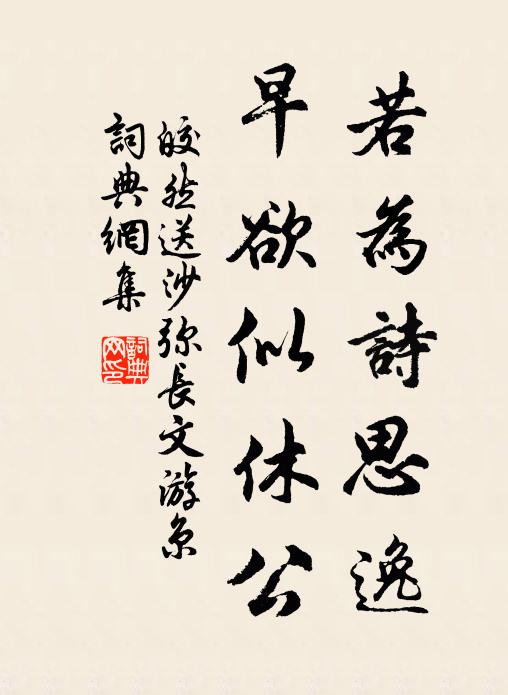 若為詩思逸
早欲似休公
皎然送沙弥長文游京
詞典網集
詞典網印